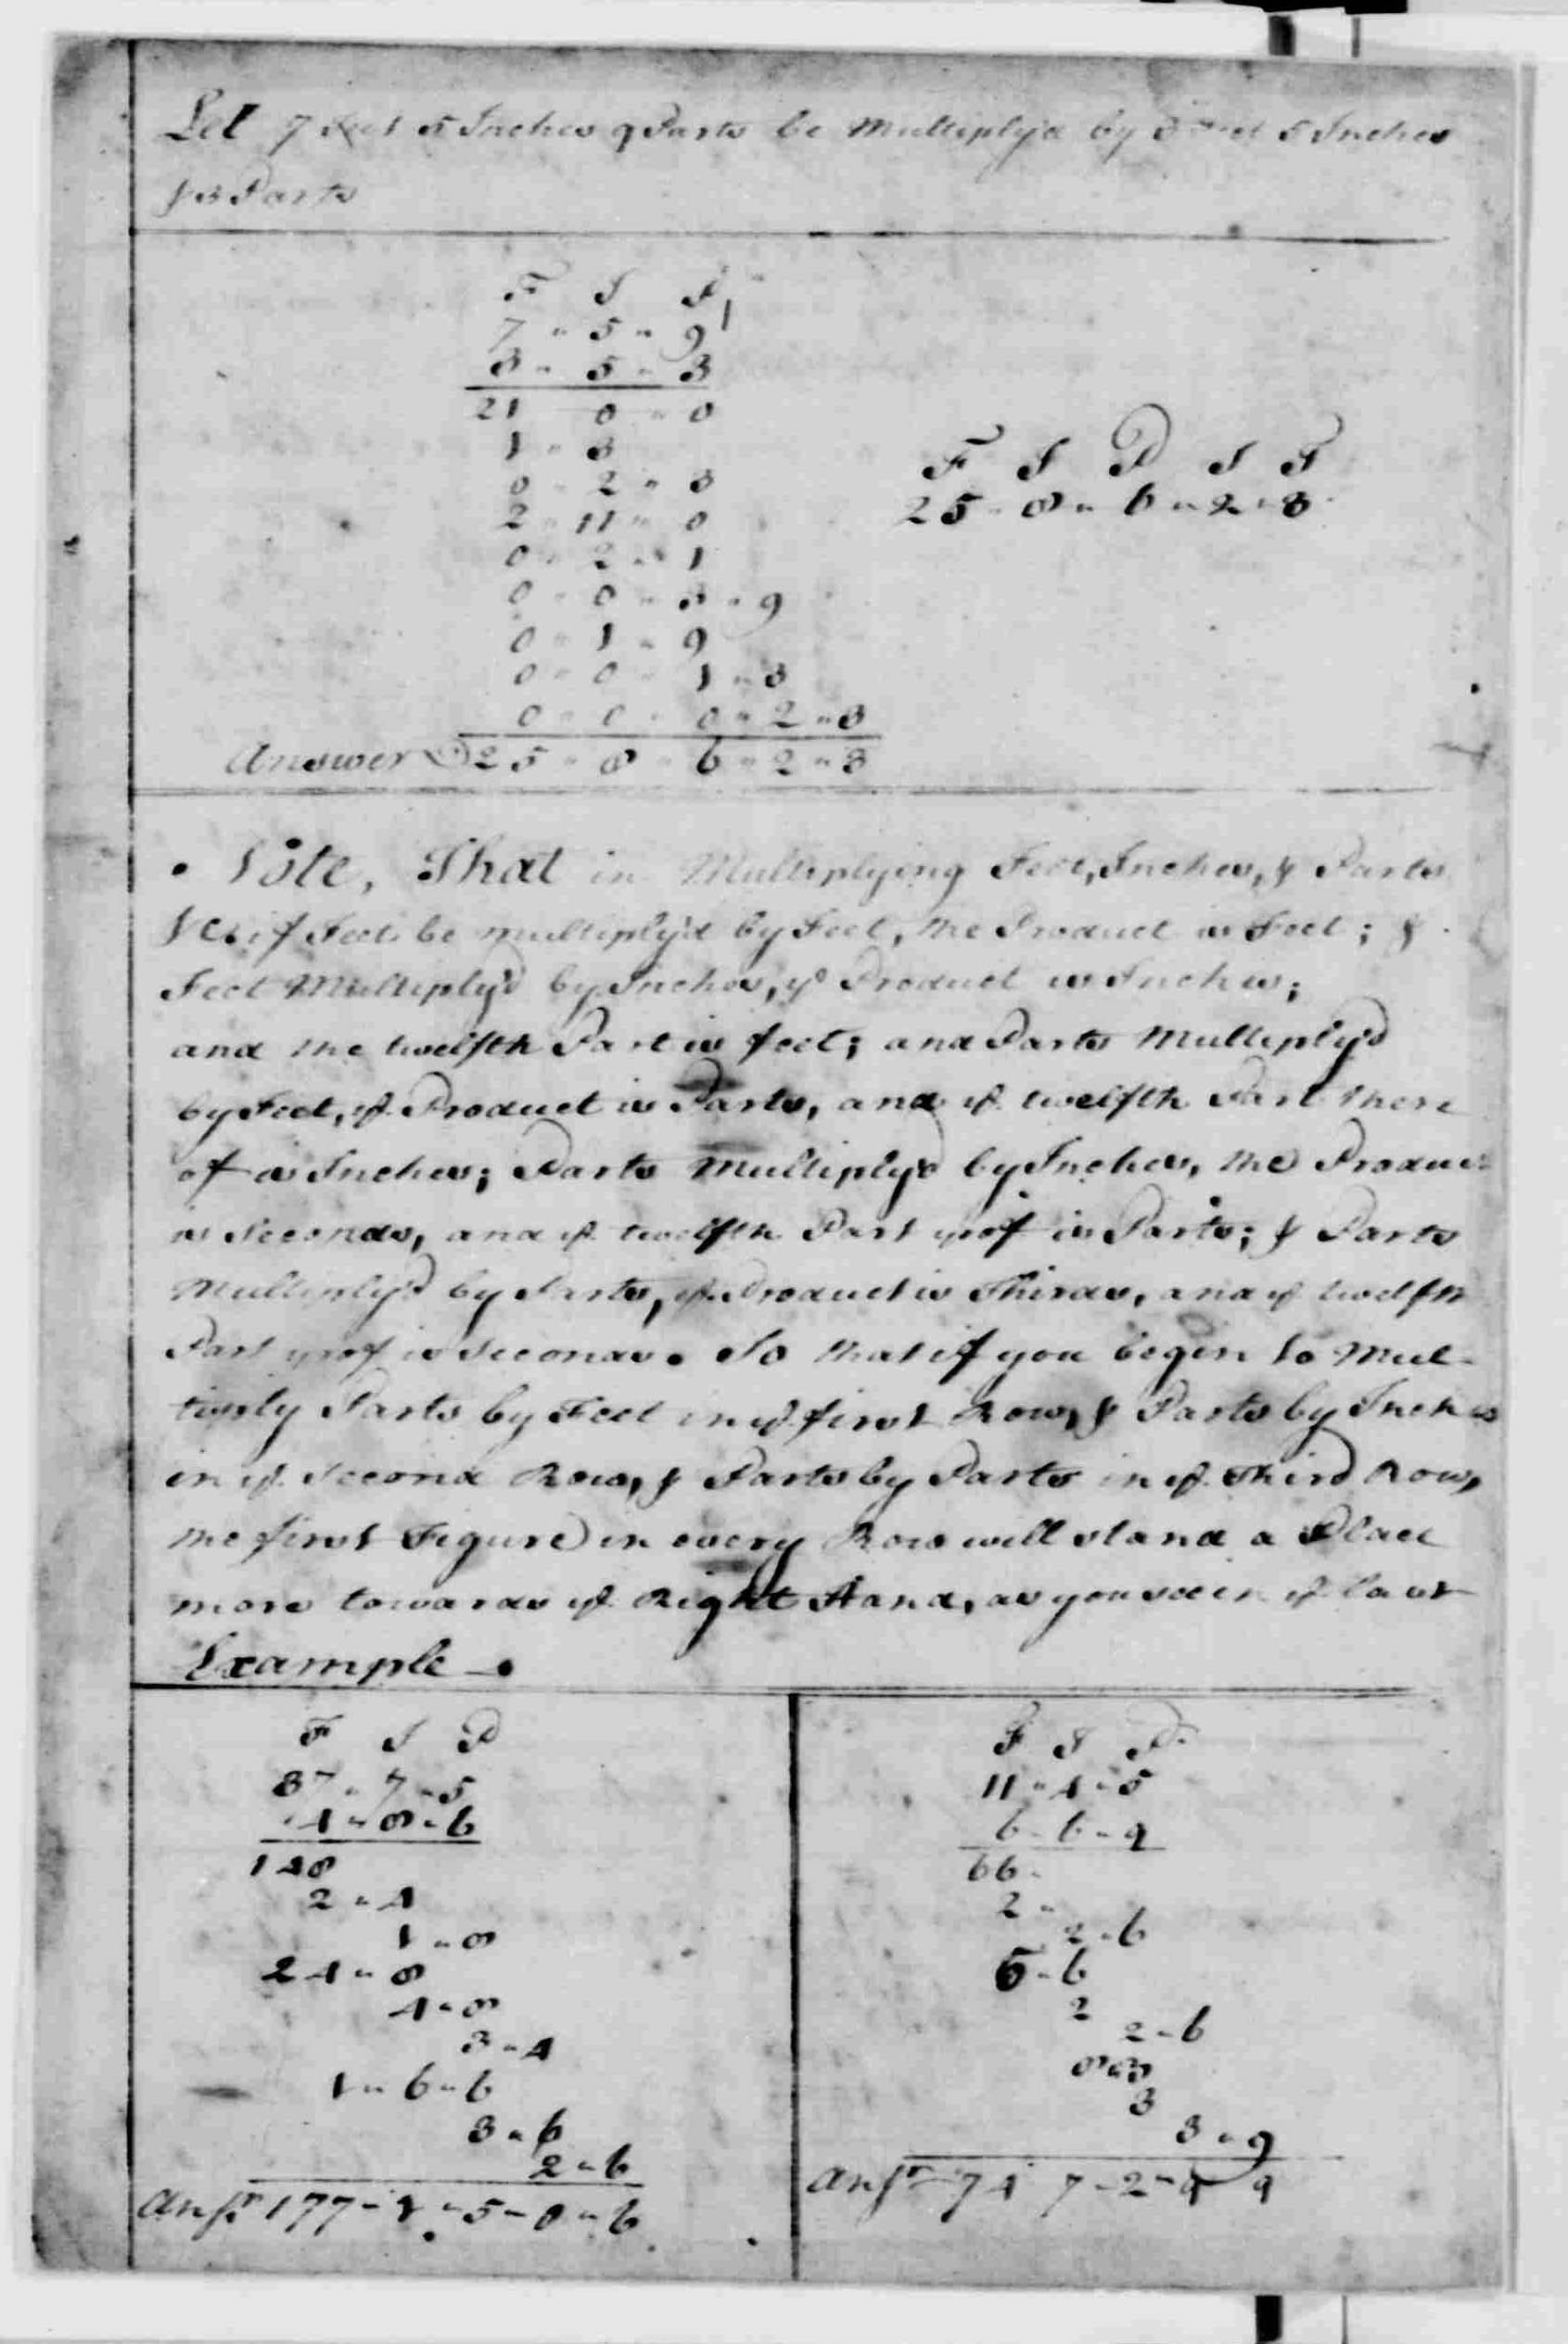 Let 7 Feet 5 Inches 9 Parts be Multiply'd by 3 Feet 5 Inches
& 3 Parts
F I P
7 " 5 " 9
3 " 5 " 3
21 0 " 0
1 " 3
0 " 2 " 3
2 " 11 " 0
0 " 2 " 1
0 " 0 " 3 " 9
0 " 1 " 9
0 " 0 " 1 " 3
0 " 0 " 0 " 2 " 3
Answer 25 " 8 " 6 " 2 " 3
F I P S T
25 " 8 " 6 " 2 " 3
Note, That in Multiplying Feet, Inches, & Parts
&c. if Feet be multiply'd by Feet, the Product is Feet; &
Feet Multiply'd by Inches, ye Product is Inches;
and the twelfth Part is feet; and Parts Multiply'd
by Feet, ye Product is Parts, and ye twelfth Part there
of is Inches; Parts Multiply'd by Inches, the Product
is Seconds, and ye twelfth Part yrof is Parts; & Parts
Multiply'd by Parts, ye Product is Thirds, and ye twelfth
Part yrof is Seconds. So that if you begin to Mul-
tiply Parts by Feet in ye first Row, & Parts by Inches
in ye Second Row, & Parts by Parts in ye Third Row,
the first Figure in every Row will stand a Place
more towards ye Right Hand, as you see in ye last
Example
F I P
37 " 7 " 5
4 " 8 " 6
148
2 " 4
1 " 8
24 " 8
4 " 8
3 " 4
1 " 6 " 6
3 " 6
2 " 6
Ansr. 177 - 1 " 5 - 0 " 6
F I P
11 " 4 " 5
6 " 6 " 9
66
2 "
2 " 6
5 " 6
2
2 " 6
8 " 3
3
3 " 9
Ansr 74 7 - 2 - 9 9